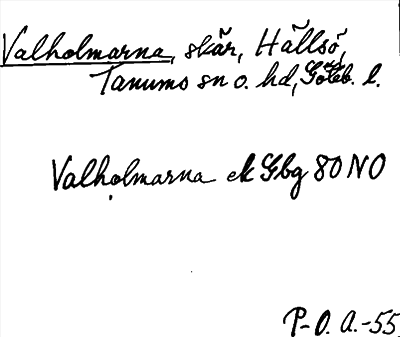 Valholmarna, skär, Hällsö,
Tanums sn o. hd, Göteb. l.
Valholmarna ek Gbg 80 NO
P-O. A.-55